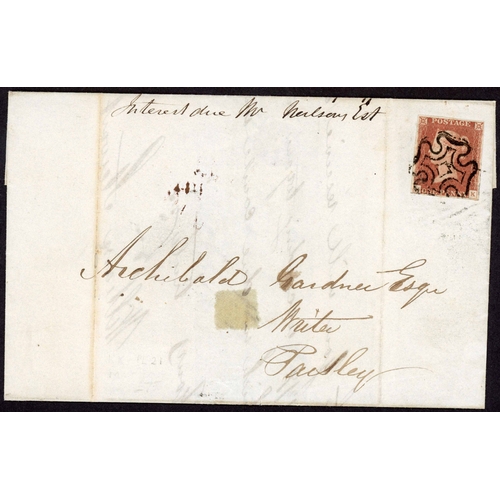 Interest due Mr Neilsons Est
POSTAGE
Archibald Gardner Esqr
Writer
Paisley